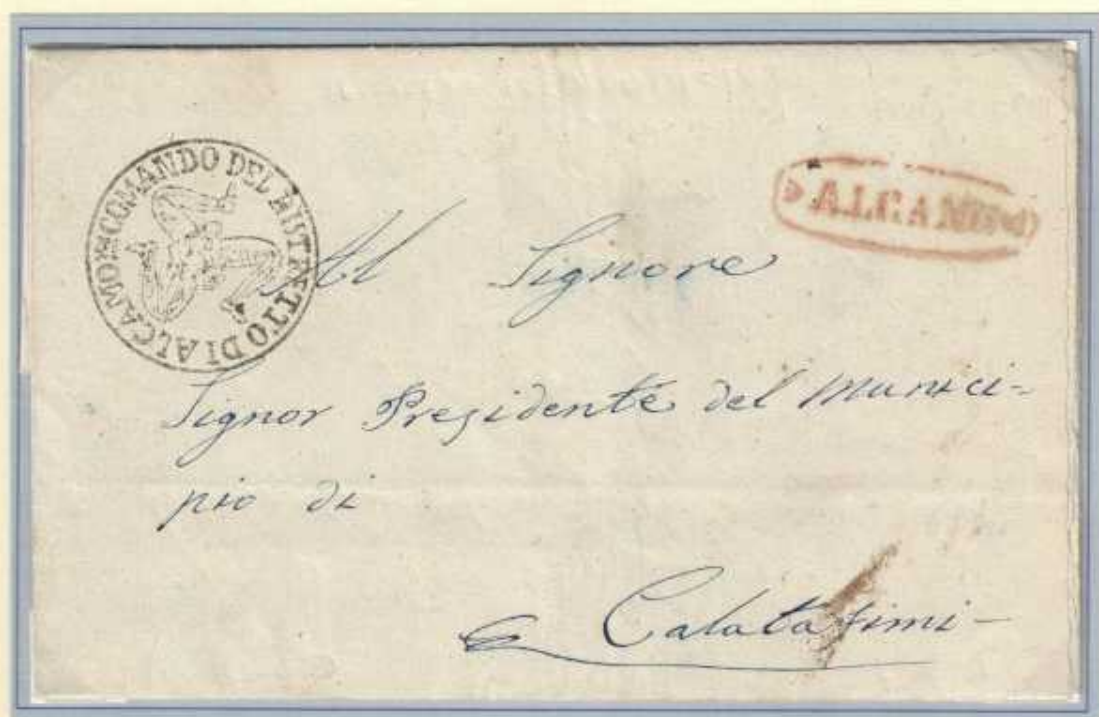 COMANDO DEL DISTRETTO DI ALCAMO
ALCAMO
Al Signore
Signor Presidente del Munici-
pio di
Calatafimi-